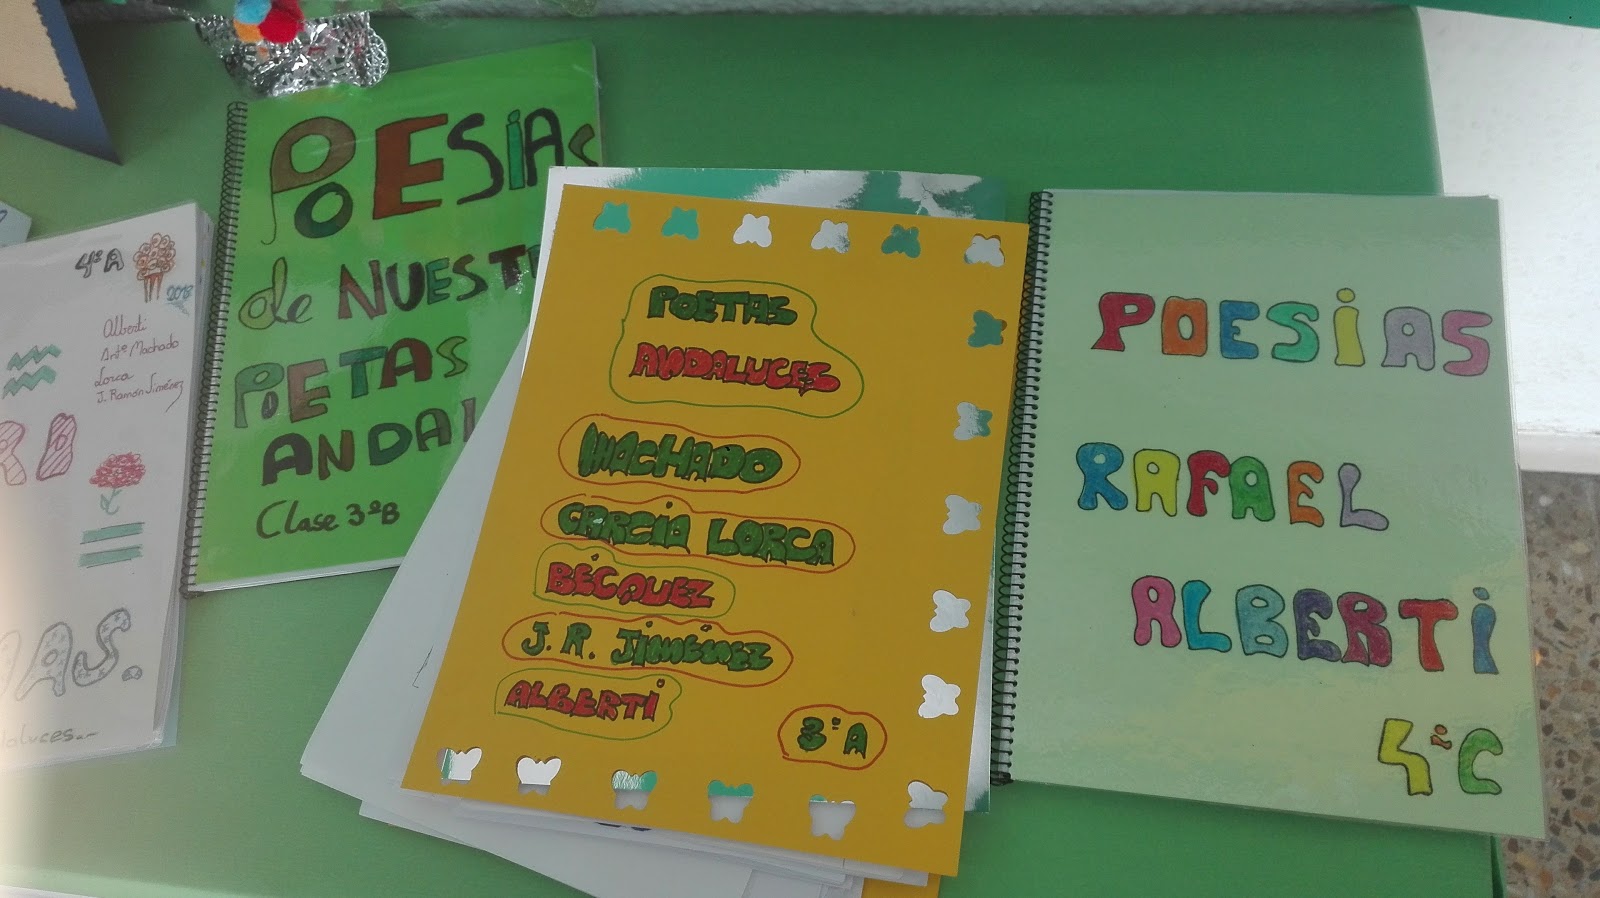 4ºA
2018
Alberti
Antº Machado
Lorca
J. Ramón Jiménez
POESIAS
de NUEST
POETAS
ANDAL
Clase 3ºB
POETAS
ANDALUCES
MACHADO
GARCIA LORCA
BÉCQUEZ
J. R. JIMÉNEZ
ALBERTI
3ºA
POESIAS
RAFAEL
ALBERTI
4ºC